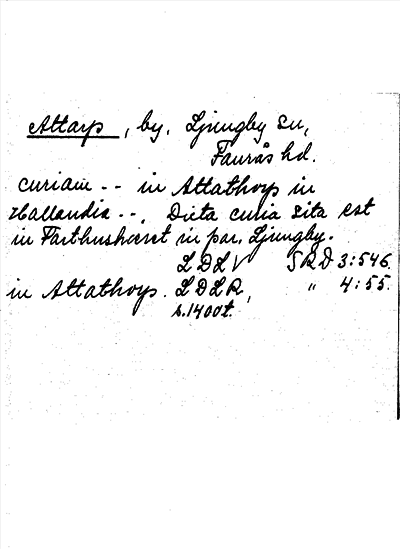 Attarp, by, Ljungby sn,
Faurås hd.
curiam -- in Attathorp in
Hallandia --. Dicta curia sita est
in Farthushæret in par. Ljungby.
LDLV SRD 3:546.
in Attathorp. LDLR, " 4:55.
s.1400t.